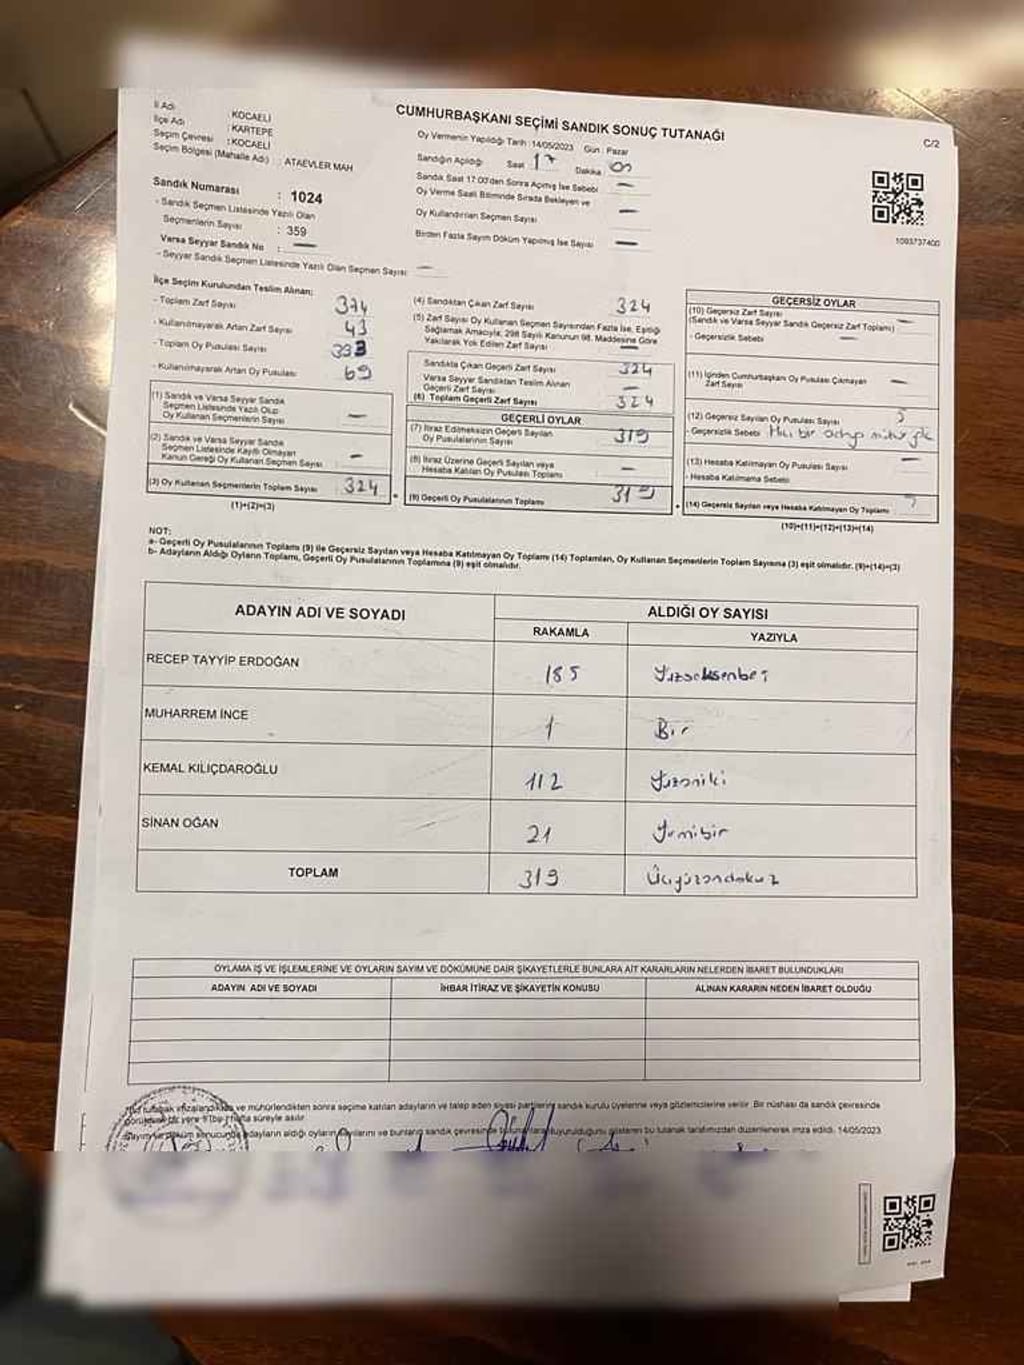 CUMHURBAŞKANI SEÇİMİ SANDIK SONUÇ TUTANAĞI
C/2
İl Adı : KOCAELİ
İlçe Adı : KARTEPE
Seçim Çevresi : KOCAELİ
Seçim Bölgesi (Mahalle Adı) : ATAEVLER MAH
Sandık Numarası : 1024
- Sandık Seçmen Listesinde Yazılı Olan
Seçmenlerin Sayısı : 359
Varsa Seyyar Sandık No : —
- Seyyar Sandık Seçmen Listesinde Yazılı Olan Seçmen Sayısı —
Oy Vermenin Yapıldığı Tarih : 14/05/2023 Gün : Pazar
Sandığın Açıldığı Saat 17 Dakika 00
Sandık Saat 17:00'den Sonra Açılmış İse Sebebi —
Oy Verme Saati Bitiminde Sırada Bekleyen ve
Oy Kullandırılan Seçmen Sayısı —
Birden Fazla Sayım Döküm Yapılmış İse Sayısı —
1093737400
İlçe Seçim Kurulundan Teslim Alınan;
- Toplam Zarf Sayısı 374
- Kullanılmayarak Artan Zarf Sayısı 43
- Toplam Oy Pusulası Sayısı 393
- Kullanılmayarak Artan Oy Pusulası 69
(1) Sandık ve Varsa Seyyar Sandık
Seçmen Listesinde Yazılı Olup
Oy Kullanan Seçmenlerin Sayısı —
(2) Sandık ve Varsa Seyyar Sandık
Seçmen Listesinde Kayıtlı Olmayan
Kanun Gereği Oy Kullanan Seçmen Sayısı —
(3) Oy Kullanan Seçmenlerin Toplam Sayısı 324
(1)+(2)=(3)
(4) Sandıktan Çıkan Zarf Sayısı 324
(5) Zarf Sayısı Oy Kullanan Seçmen Sayısından Fazla İse, Eşitliği
Sağlamak Amacıyla, 298 Sayılı Kanunun 98. Maddesine Göre
Yakılarak Yok Edilen Zarf Sayısı —
Sandıkta Çıkan Geçerli Zarf Sayısı 324
Varsa Seyyar Sandıktan Teslim Alınan
Geçerli Zarf Sayısı —
(6) Toplam Geçerli Zarf Sayısı 324
GEÇERLİ OYLAR
(7) İtiraz Edilmeksizin Geçerli Sayılan
Oy Pusulalarının Sayısı 319
(8) İtiraz Üzerine Geçerli Sayılan veya
Hesaba Katılan Oy Pusulaları Toplamı —
(9) Geçerli Oy Pusulalarının Toplamı 319
GEÇERSİZ OYLAR
(10) Geçersiz Zarf Sayısı
(Sandık ve Varsa Seyyar Sandık Geçersiz Zarf Toplamı) —
- Geçersizlik Sebebi —
(11) İçinden Cumhurbaşkanı Oy Pusulası Çıkmayan
Zarf Sayısı —
(12) Geçersiz Sayılan Oy Pusulası Sayısı
- Geçersizlik Sebebi
(13) Hesaba Katılmayan Oy Pusulası Sayısı —
- Hesaba Katılmama Sebebi
(14) Geçersiz Sayılan veya Hesaba Katılmayan Oy Toplamı
(10)+(11)+(12)+(13)=(14)
NOT:
a- Geçerli Oy Pusulalarının Toplamı (9) ile Geçersiz Sayılan veya Hesaba Katılmayan Oy Toplamı (14) Toplamları, Oy Kullanan Seçmenlerin Toplam Sayısına (3) eşit olmalıdır. (9)+(14)=(3)
b- Adayların Aldığı Oyların Toplamı, Geçerli Oy Pusulalarının Toplamına (9) eşit olmalıdır.
ADAYIN ADI VE SOYADI ALDIĞI OY SAYISI
RAKAMLA YAZIYLA
RECEP TAYYİP ERDOĞAN 185 Yüzseksenbeş
MUHARREM İNCE 1 Bir
KEMAL KILIÇDAROĞLU 112 Yüzoniki
SİNAN OĞAN 21 Yirmibir
TOPLAM 319 Üçyüzondokuz
OYLAMA İŞ VE İŞLEMLERİNE VE OYLARIN SAYIM VE DÖKÜMÜNE DAİR ŞİKAYETLERLE BUNLARA AİT KARARLARIN NELERDEN İBARET BULUNDUKLARI
ADAYIN ADI VE SOYADI İHBAR İTİRAZ VE ŞİKAYETİN KONUSU ALINAN KARARIN NEDEN İBARET OLDUĞU
ve mühürlendikten sonra seçime katılan adayların ve talep eden siyasi partilerin sandık kurulu üyelerine veya gözlemcilerine verilir. Bir nüshası da sandık çevresinde
bir yere 1 hafta süreyle asılır.
adayların aldığı oyların gösteren bu tutanak tarafımızdan düzenlenerek imza edildi. 14/05/2023